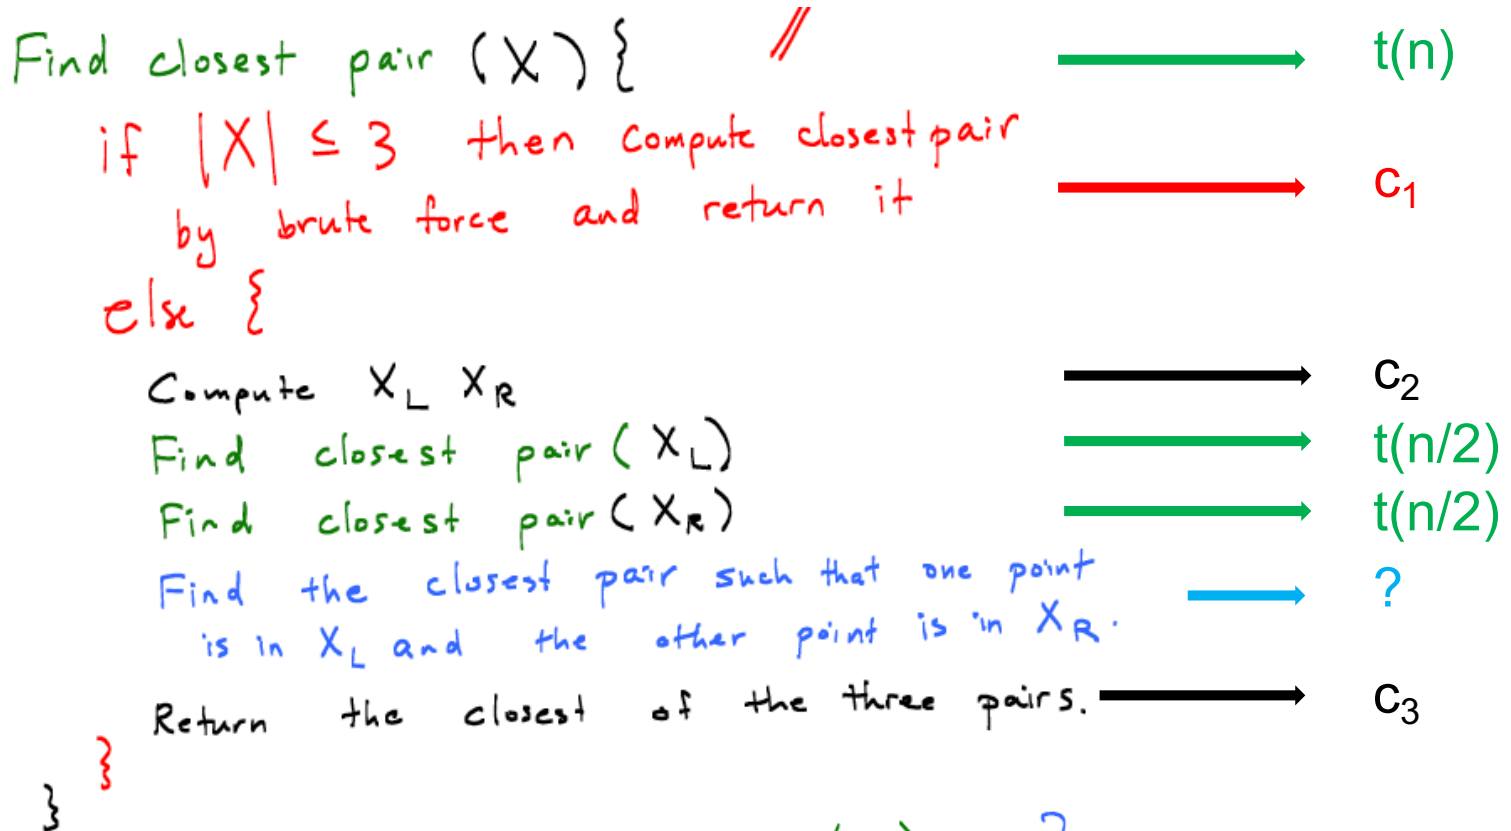 Find closest pair (X) { // t(n)
if |X| ≤ 3 then compute closest pair
by brute force and return it c₁
else {
Compute X_L X_R c₂
Find closest pair ( X_L) t(n/2)
Find closest pair ( X_R) t(n/2)
Find the closest pair such that one point ?
is in X_L and the other point is in X_R.
Return the closest of the three pairs. c₃
}
}